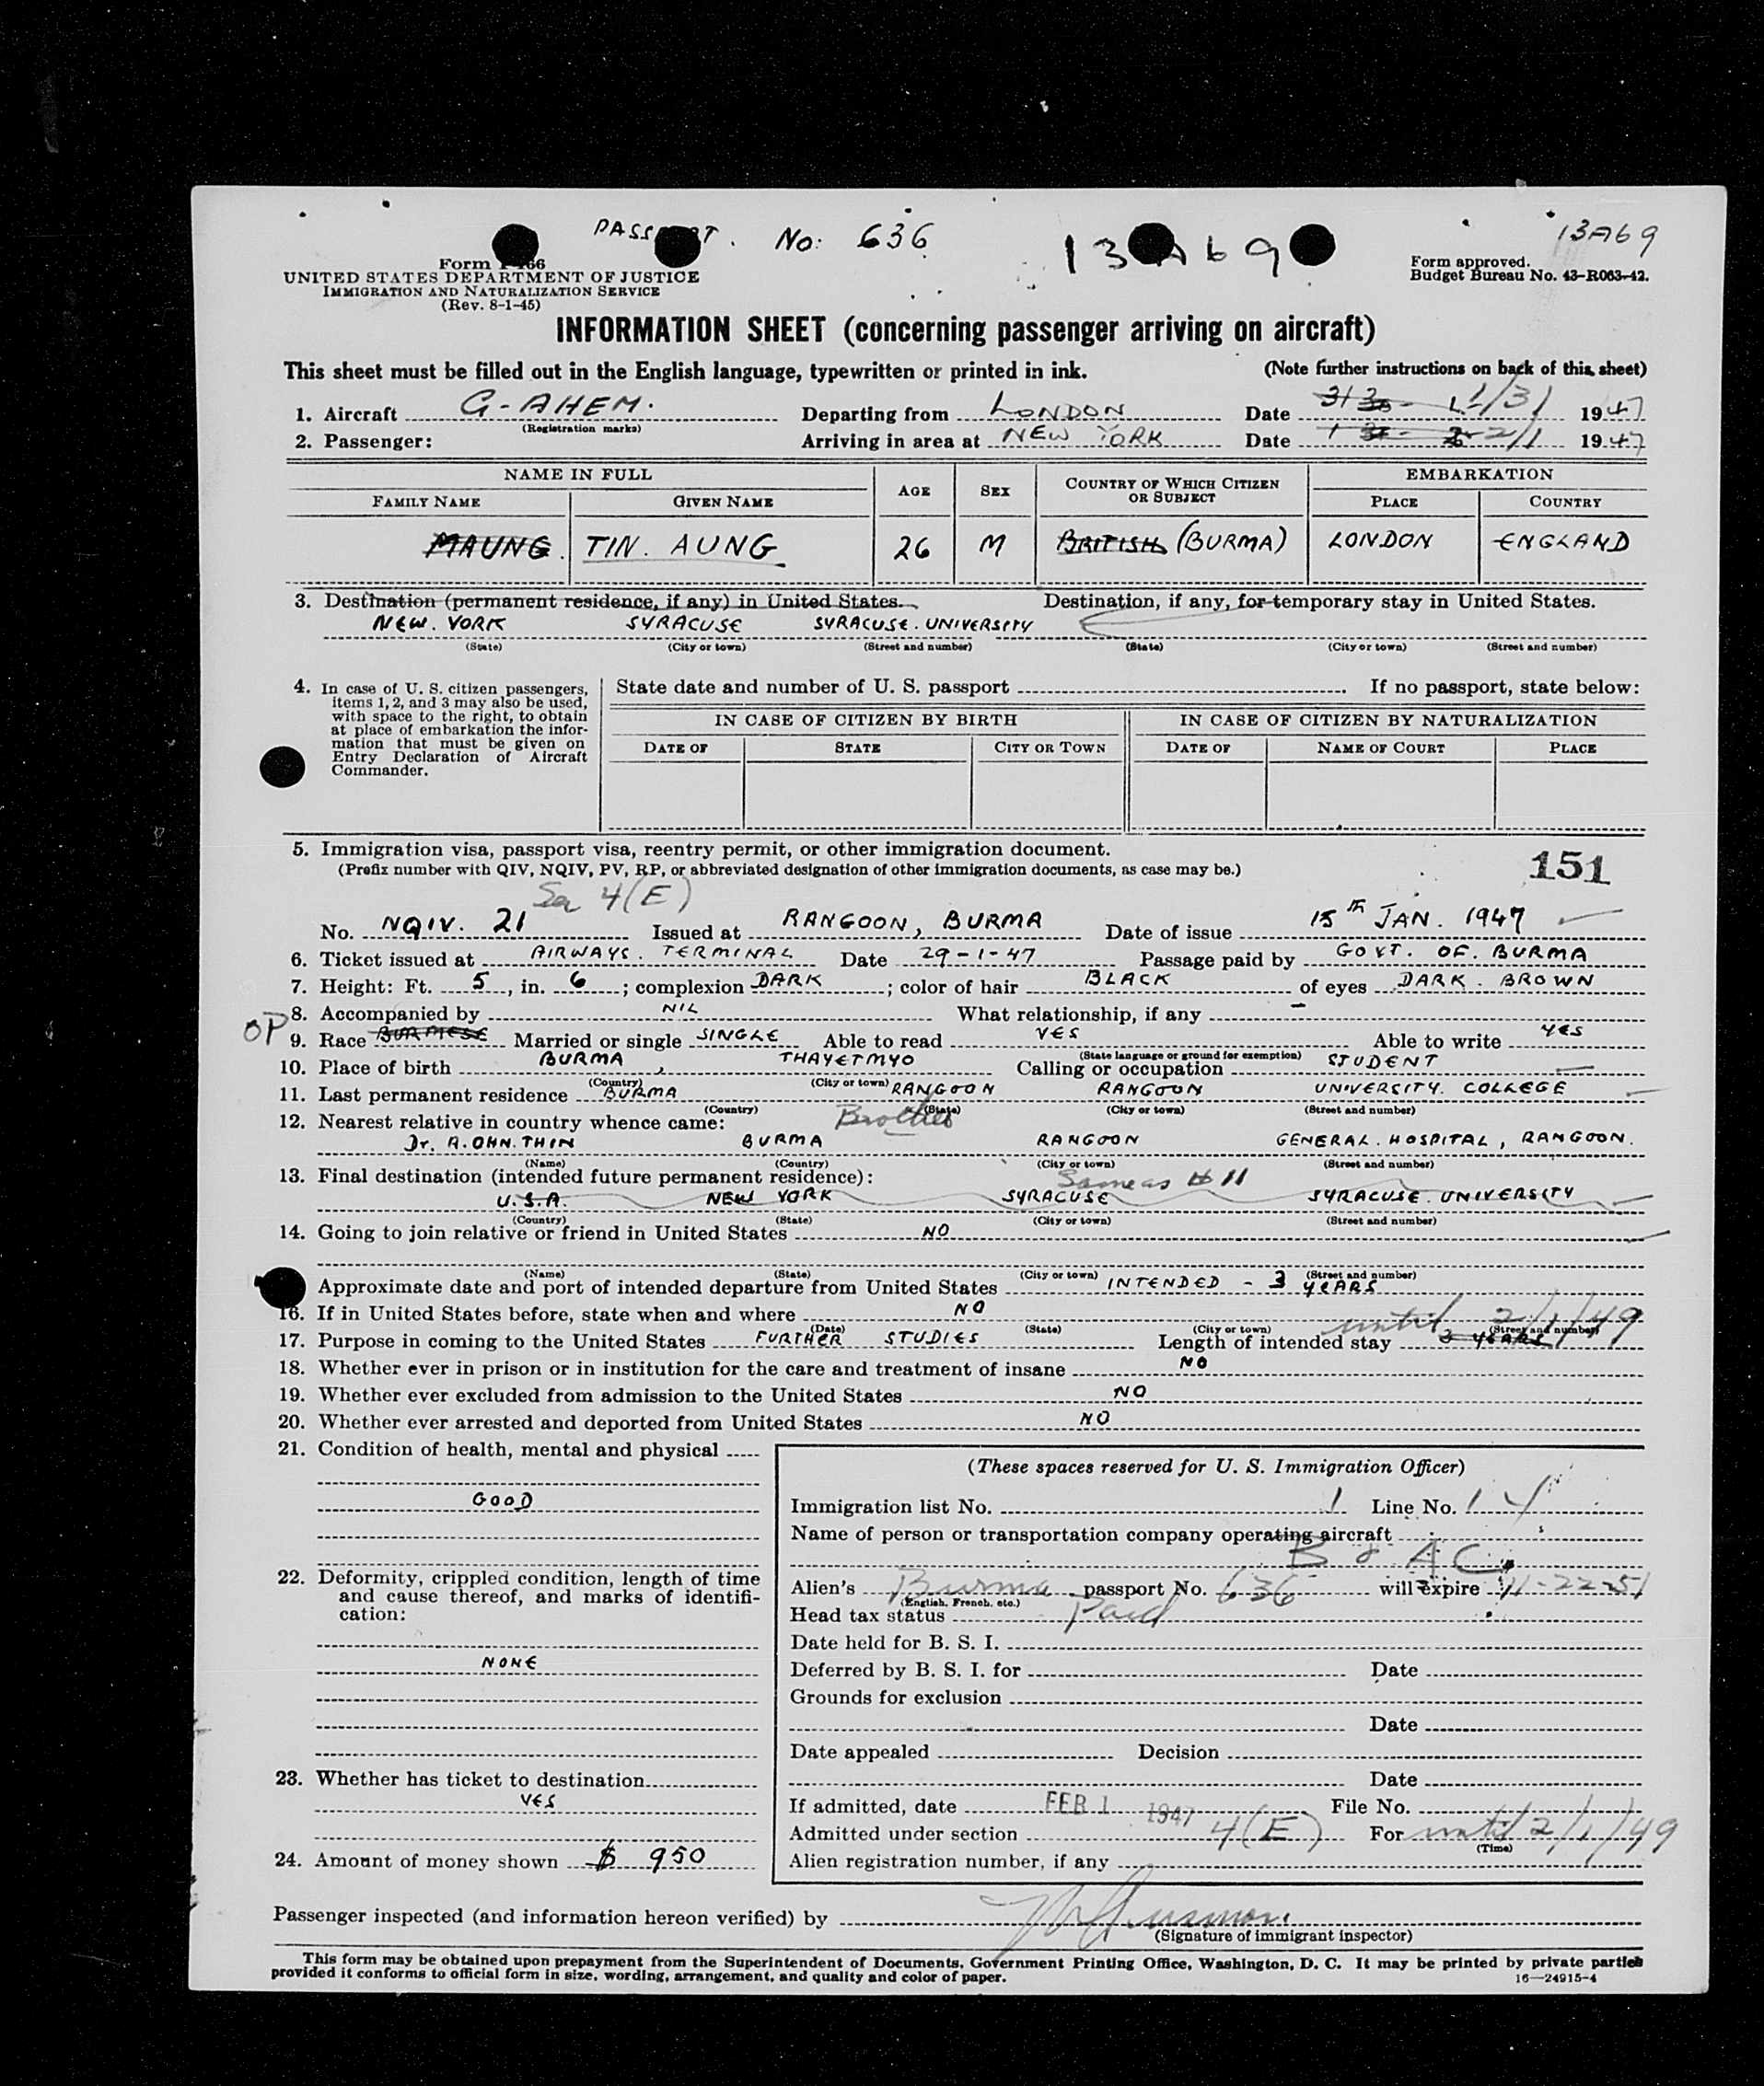 PASSPORT. No: 636
13A69
13A69
Form I-466
UNITED STATES DEPARTMENT OF JUSTICE
IMMIGRATION AND NATURALIZATION SERVICE
(Rev. 8-1-45)
Form approved.
Budget Bureau No. 43-R063-42.
INFORMATION SHEET (concerning passenger arriving on aircraft)
This sheet must be filled out in the English language, typewritten or printed in ink. (Note further instructions on back of this sheet)
1. Aircraft G-AHEM. Departing from LONDON Date 1/31 1947
(Registration marks)
2. Passenger: Arriving in area at NEW YORK Date 2/1 1947
NAME IN FULL AGE SEX COUNTRY OF WHICH CITIZEN OR SUBJECT EMBARKATION
FAMILY NAME GIVEN NAME PLACE COUNTRY
MAUNG. TIN. AUNG 26 M BRITISH (BURMA) LONDON ENGLAND
3. Destination (permanent residence, if any) in United States. Destination, if any, for temporary stay in United States.
NEW. YORK SYRACUSE SYRACUSE. UNIVERSITY
(State) (City or town) (Street and number) (State) (City or town) (Street and number)
4. In case of U. S. citizen passengers, items 1, 2, and 3 may also be used, with space to the right, to obtain at place of embarkation the information that must be given on Entry Declaration of Aircraft Commander.
State date and number of U. S. passport. If no passport, state below:
IN CASE OF CITIZEN BY BIRTH IN CASE OF CITIZEN BY NATURALIZATION
DATE OF STATE CITY OR TOWN DATE OF NAME OF COURT PLACE
5. Immigration visa, passport visa, reentry permit, or other immigration document.
(Prefix number with QIV, NQIV, PV, RP, or abbreviated designation of other immigration documents, as case may be.)
151
4(E)
No. NQIV. 21 Issued at RANGOON, BURMA Date of issue 15th JAN. 1947
6. Ticket issued at AIRWAYS. TERMINAL Date 29-1-47 Passage paid by GOVT. OF. BURMA
7. Height: Ft. 5, in. 6; complexion DARK; color of hair BLACK of eyes DARK. BROWN
8. Accompanied by NIL What relationship, if any –
OP 9. Race BURMESE Married or single SINGLE Able to read YES Able to write YES
(State language or ground for exemption)
10. Place of birth BURMA, THAYETMYO Calling or occupation STUDENT
(Country) (City or town)
11. Last permanent residence BURMA RANGOON RANGOON UNIVERSITY. COLLEGE
(Country) (State) (City or town) (Street and number)
12. Nearest relative in country whence came: Brother
Dr. A. OHN. THIN BURMA RANGOON GENERAL. HOSPITAL, RANGOON.
(Name) (Country) (City or town) (Street and number)
13. Final destination (intended future permanent residence): Same as # 11
U.S.A. NEW YORK SYRACUSE SYRACUSE. UNIVERSITY
(Country) (State) (City or town) (Street and number)
14. Going to join relative or friend in United States NO
(Name) (State) (City or town) (Street and number)
Approximate date and port of intended departure from United States INTENDED - 3 YEARS
16. If in United States before, state when and where NO
(Date) (State) (City or town) (Street and number)
until 2/1/49
17. Purpose in coming to the United States FURTHER STUDIES Length of intended stay 3 YEARS
18. Whether ever in prison or in institution for the care and treatment of insane NO
19. Whether ever excluded from admission to the United States NO
20. Whether ever arrested and deported from United States NO
21. Condition of health, mental and physical
GOOD
22. Deformity, crippled condition, length of time and cause thereof, and marks of identification:
NONE
23. Whether has ticket to destination
YES
24. Amount of money shown $ 950
(These spaces reserved for U. S. Immigration Officer)
Immigration list No. 1 Line No. 1
Name of person or transportation company operating aircraft
B O A C
Alien's Burma passport No. 636 will expire 11-22-51
(English, French, etc.)
Head tax status Paid
Date held for B. S. I.
Deferred by B. S. I. for Date
Grounds for exclusion
Date
Date appealed Decision
Date
If admitted, date FEB 1 1947 File No.
Admitted under section 4(E) For until 2/1/49
(Time)
Alien registration number, if any
Passenger inspected (and information hereon verified) by
(Signature of immigrant inspector)
This form may be obtained upon prepayment from the Superintendent of Documents, Government Printing Office, Washington, D. C. It may be printed by private parties
provided it conforms to official form in size, wording, arrangement, and quality and color of paper. 16—24915-4